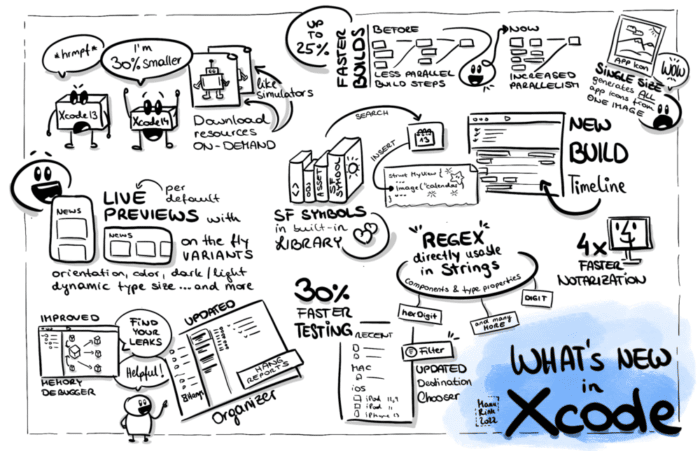 *hrmpf*
I'm
30% smaller
Xcode13
Xcode14
like
simulators
Download
resources
ON-DEMAND
UP
TO
25%
FASTER
BUILDS
BEFORE
LESS PARALLEL
BUILD STEPS
NOW
INCREASED
PARALLELISM
APP ICON
WOW
SINGLE SIZE
generates ALL
app icons from
ONE IMAGE
per
default
LIVE
PREVIEWS with
on the fly
VARIANTS
orientation, color, dark/light
dynamic type size ... and more
NEWS
NEWS
SEARCH
INSERT
13
<>
OBJ
ASSET
SF SYMBOL
struct MyView {
...
Image("calendar")
SF SYMBOLS
in built-in
LIBRARY
NEW
BUILD
Timeline
4x
FASTER
NOTARIZATION
"REGEX"
directly usable
in Strings
Components & type properties
hexDigit
and many
MORE
DIGIT
IMPROVED
MEMORY
DEBUGGER
FIND
YOUR
LEAKS
Helpful!
UPDATED
HANG
REPORTS
Organizer
30%
FASTER
TESTING
RECENT
MAC
iOS
iPad 12,9
iPad 11
iPhone 13
Filter
UPDATED
Destination
Chooser
WHAT'S NEW
in
Xcode
2022